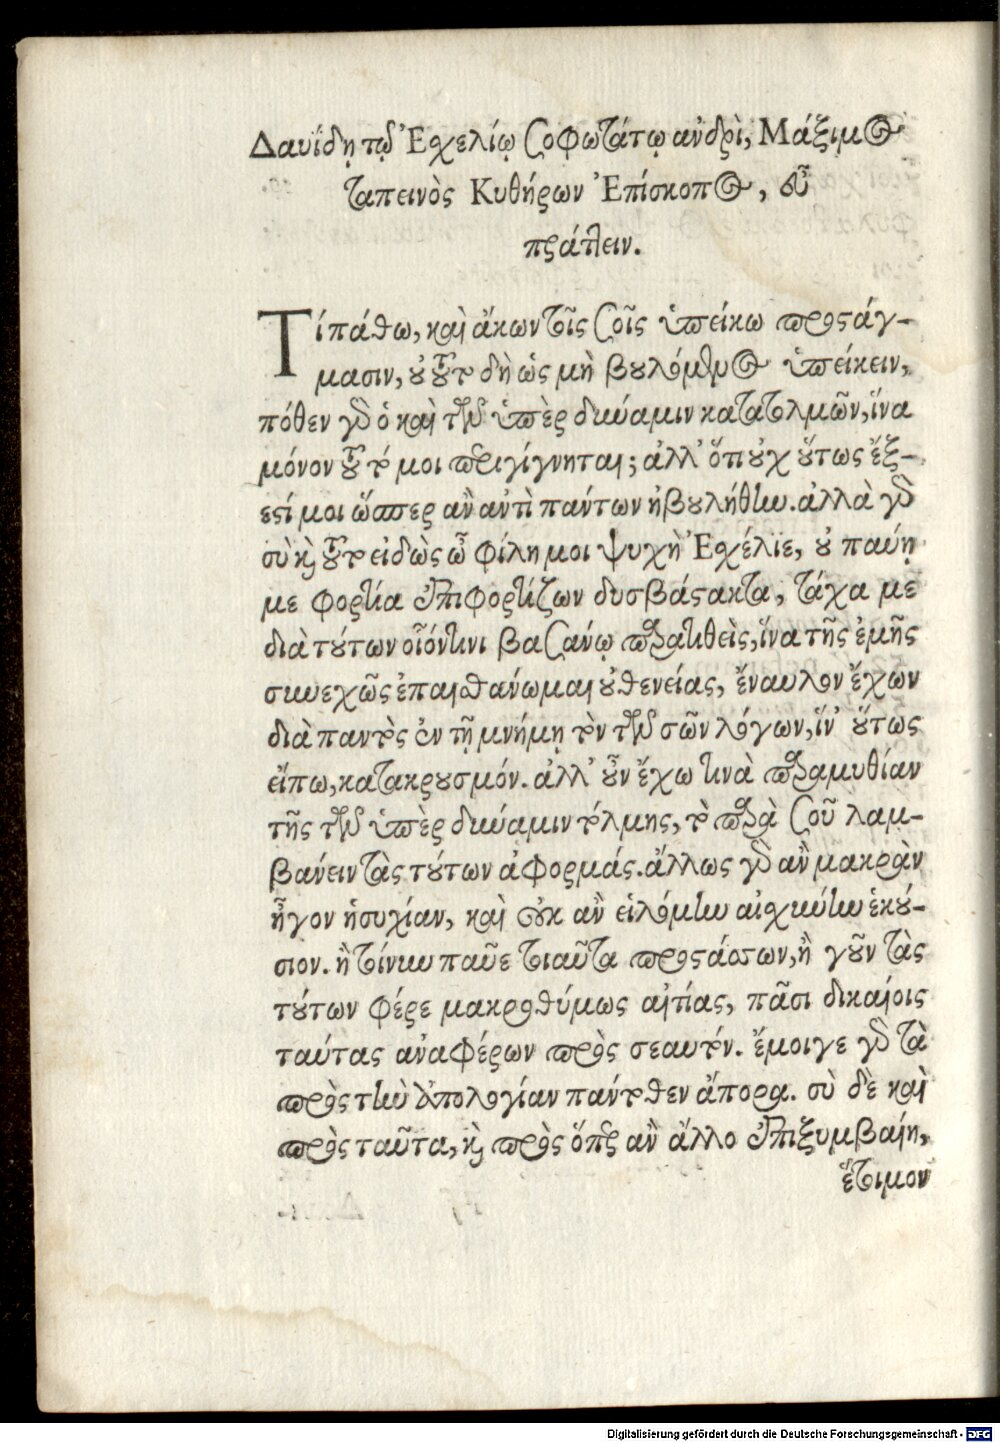 Δαυΐδῃ τῷ Ἐσχελίῳ σοφωτάτῳ ἀνδρὶ, Μάξιμος
ταπεινὸς Κυθήρων Ἐπίσκοπος, εὖ
πράττειν.
Τί πάθω, καὶ ἄκων τοῖς σοῖς ὑπείκω προστάγ-
μασιν, οὐ τοῦτο δὴ ὡς μὴ βουλόμενος ὑπείκειν,
πόθεν γὰρ ὁ καὶ τῶν ὑπὲρ δύναμιν κατατολμῶν, ἵνα
μόνον τοῦτό μοι περιγίγνηται; ἀλλ' ὅτι οὐχ οὕτως ἔξ-
εστί μοι ὥσπερ ἂν ἀντὶ πάντων ἠβουλήθην. ἀλλὰ γὰρ
σὺ καὶ τοῦτο εἰδὼς ὦ φίλη μοι ψυχὴ Ἐσχέλιε, οὐ παύῃ
με φορτία ἐπιφορτίζων δυσβάστακτα, τάχα με
διὰ τούτων οἷόν τινι βασάνῳ παρατιθεὶς, ἵνα τῆς ἐμῆς
συνεχῶς ἐπαισθάνωμαι οὐθενείας, ἔναυλον ἔχων
διὰ παντὸς ἐν τῇ μνήμῃ τὸν τῶν σῶν λόγων, ἵν' οὕτως
εἴπω, κατακρουσμόν. ἀλλ' οὖν ἔχω τινὰ παραμυθίαν
τῆς τῶν ὑπὲρ δύναμιν τόλμης, τὸ παρὰ σοῦ λαμ-
βάνειν τὰς τούτων ἀφορμάς. ἄλλως γὰρ ἂν μακρὰν
ἦγον ἡσυχίαν, καὶ οὐκ ἂν εἱλόμην αἰσχύνην ἑκού-
σιον. ἢ τοίνυν παῦε τοιαῦτα προστάσσων, ἢ γοῦν τὰς
τούτων φέρε μακροθύμως αἰτίας, πᾶσι δικαίοις
ταύτας ἀναφέρων πρὸς σεαυτόν. ἔμοιγε γὰρ τὰ
πρὸς τὴν ἀπολογίαν πάντοθεν ἄπορα. σὺ δὲ καὶ
πρὸς ταῦτα, καὶ πρὸς ὅπερ ἂν ἄλλο ἐπιξυμβαίη,
ἕτοιμον
Digitalisierung gefördert durch die Deutsche Forschungsgemeinschaft - DFG